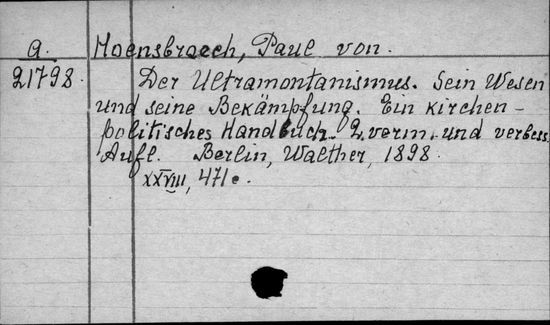 a. Hoensbroech, Paul von.
21798. Der Ultramontanismus. Sein Wesen
und seine Bekämpfung. Ein kirchen-
politisches Handbuch. 2. verm. und verbess.
Aufl. Berlin, Walther, 1898.
XXVIII, 471 c.